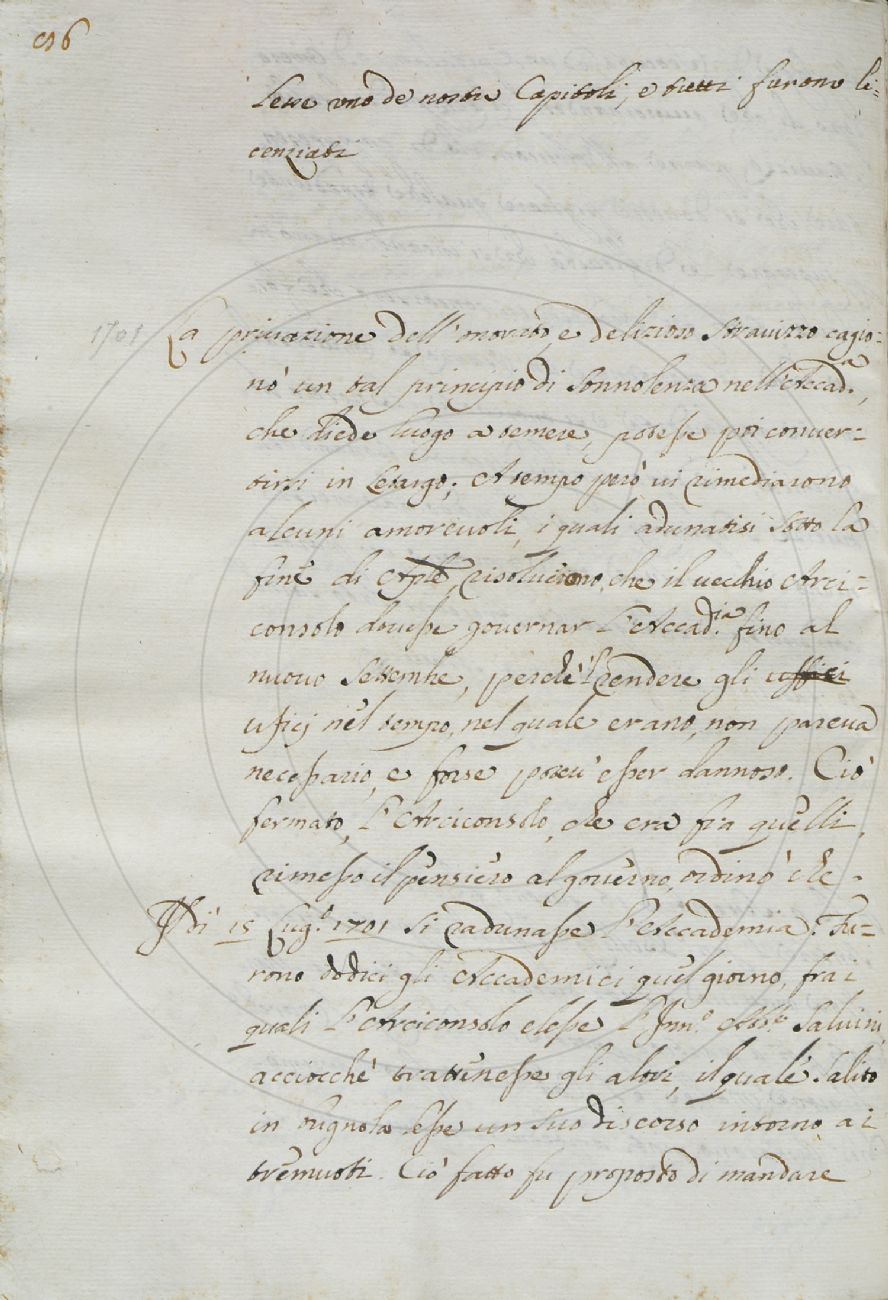 96
Lesse uno de nostri Capitoli, e tutti furono li-
cenziati
1701
La privazione dell'onorato, e delizioso Stravizzo cagio-
nò un tal principio di sonnolenza nell'Accad.a,
che diede luogo a temere, potesse poi conver-
tirsi in Letargo; A tempo però vi rimediarono
alcuni amorevoli, i quali adunatisi sotto la
fine di Aple, risoluerono, che il vecchio Arci-
consolo dovesse governar l'Accad.ia fino al
nuovo Settembre, perchè 'l rendere gli uffici
ufici nel tempo, nel quale erano, non pareva
necessario, e forse potev' esser dannoso. Ciò
fermato, l'Arciconsolo, che era fra quelli,
rimesso il pensiero al governo, ordinò che
Adì 15 Lug.o 1701 si radunasse l'Accademia. Fu-
rono dodici gli Accademici quel giorno, fra i
quali l'Arciconsolo elesse l'Inn.o Ab.e Salvini,
acciocchè trattenesse gli altri, il quale salito
in bugnola lesse un suo discorso intorno a i
tremuoti. Ciò fatto fu proposto di mandare